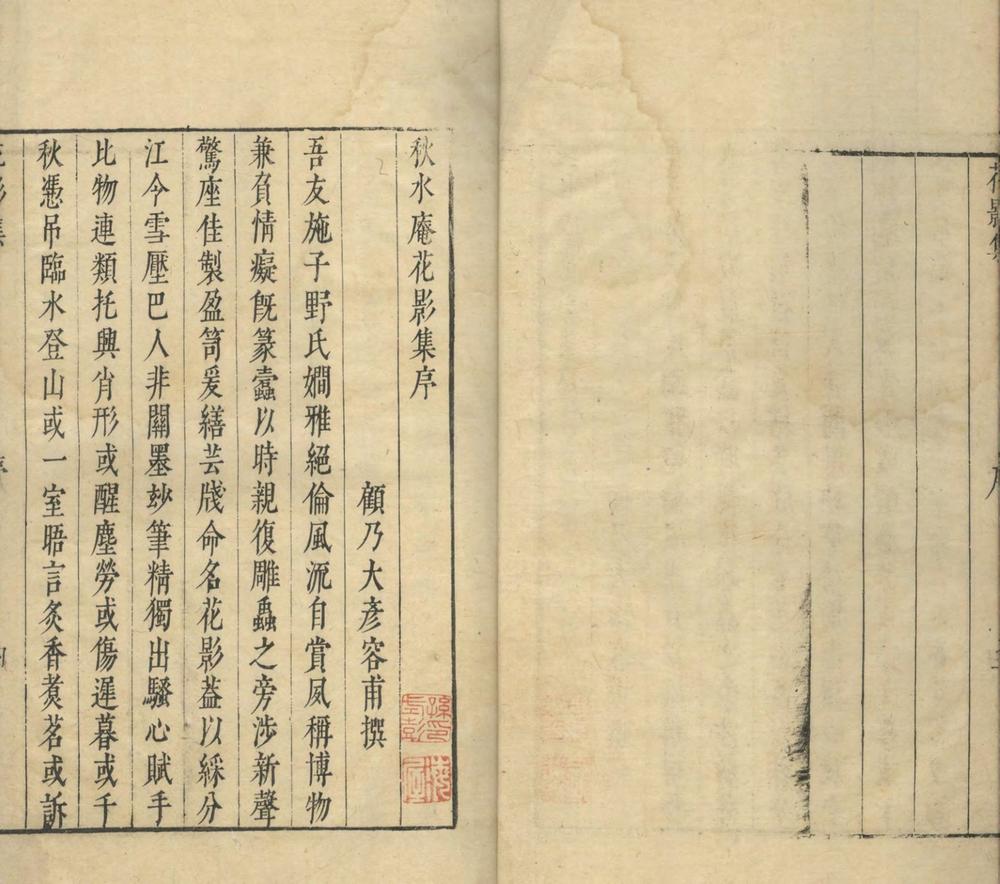 花影集
序
秋水庵花影集序
顧乃大彦容甫撰
吾友施子野氏嫺雅絕倫風流自賞夙稱博物
兼負情癡旣篆蠹以時親復雕蟲之旁涉新聲
驚座佳製盈笥爰繕芸牋命名花影葢以綵分
江令雪壓巴人非關墨玅筆精獨出騷心賦手
比物連類托興肖形或醒塵勞或傷遲暮或千
秋憑吊臨水登山或一室晤言炙香煑茗或訴